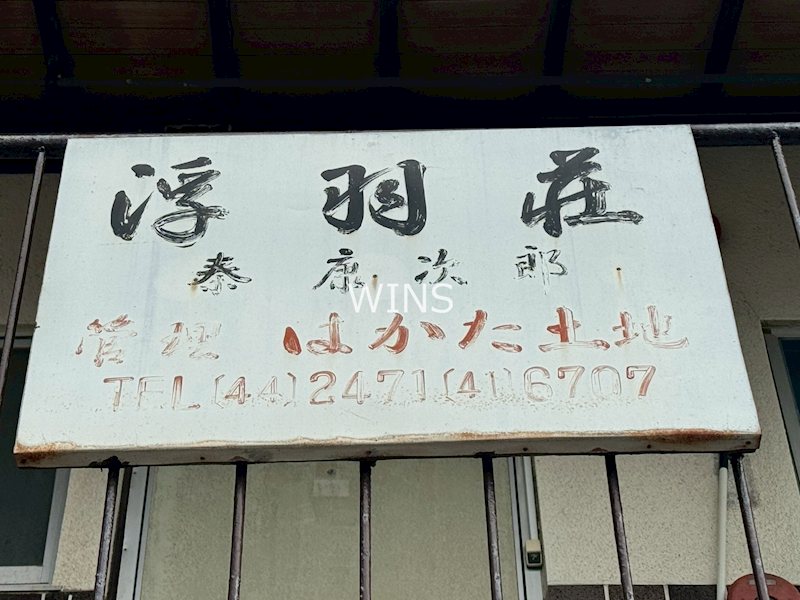 浮羽荘
秦康次郎
WINS
管理 はかた土地
TEL(44)2471(41)6707